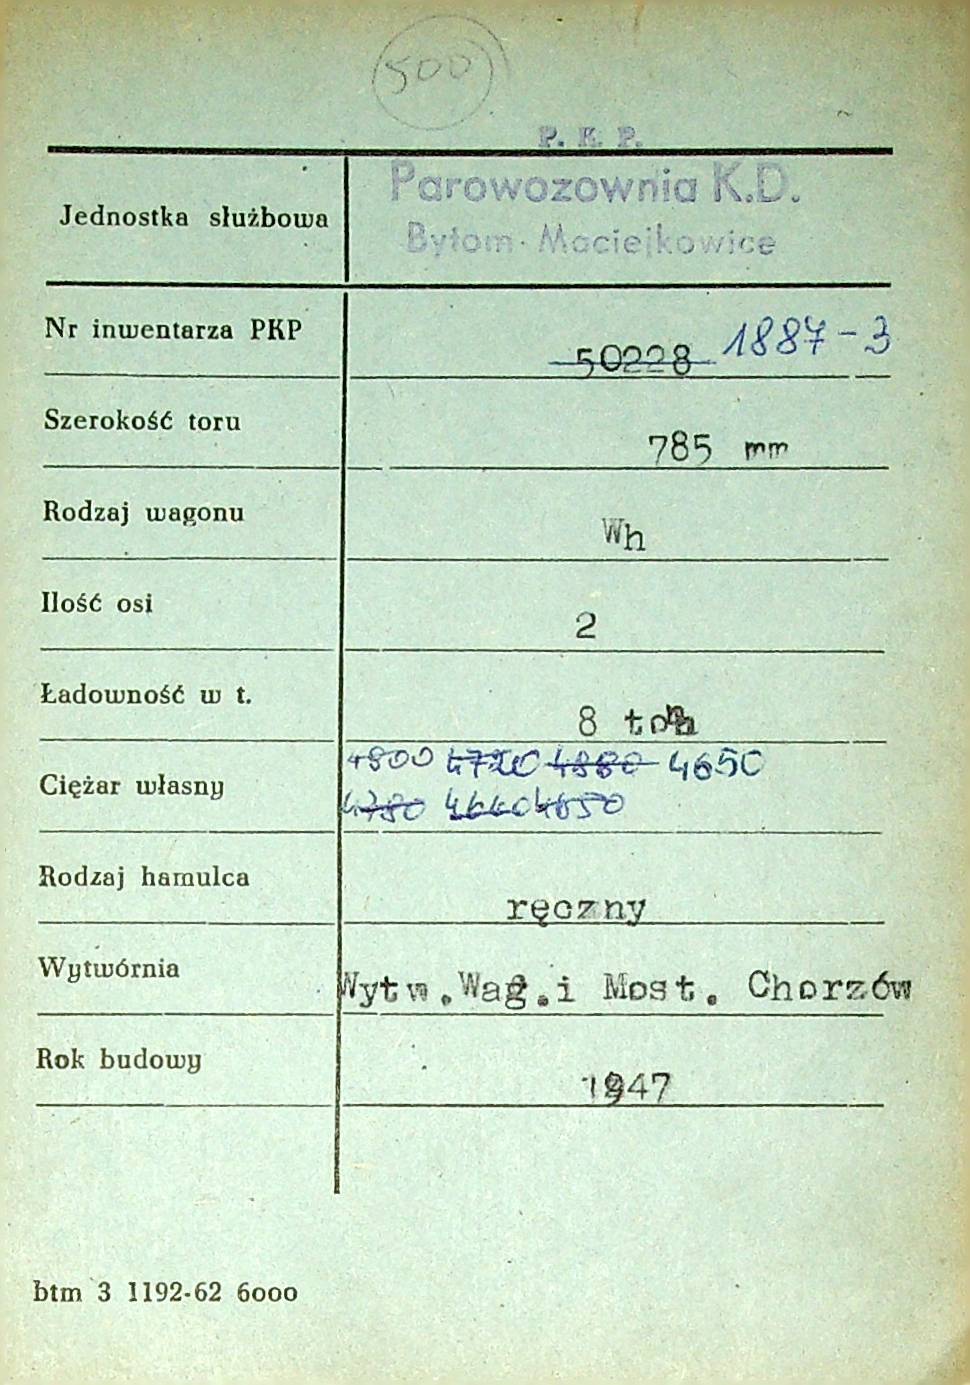 500
P. K. P.
Jednostka służbowa Parowozownia K.D.
Bytom-Maciejkowice
Nr inwentarza PKP 50228 1887-3
Szerokość toru 785 mm
Rodzaj wagonu Wh
Ilość osi 2
Ładowność w t. 8 ton
Ciężar własny 4800 4720 4880 4650
4780 4640 4650
Rodzaj hamulca ręczny
Wytwórnia Wytw.Wag.i Most. Chorzów
Rok budowy 1947
btm 3 1192-62 6000